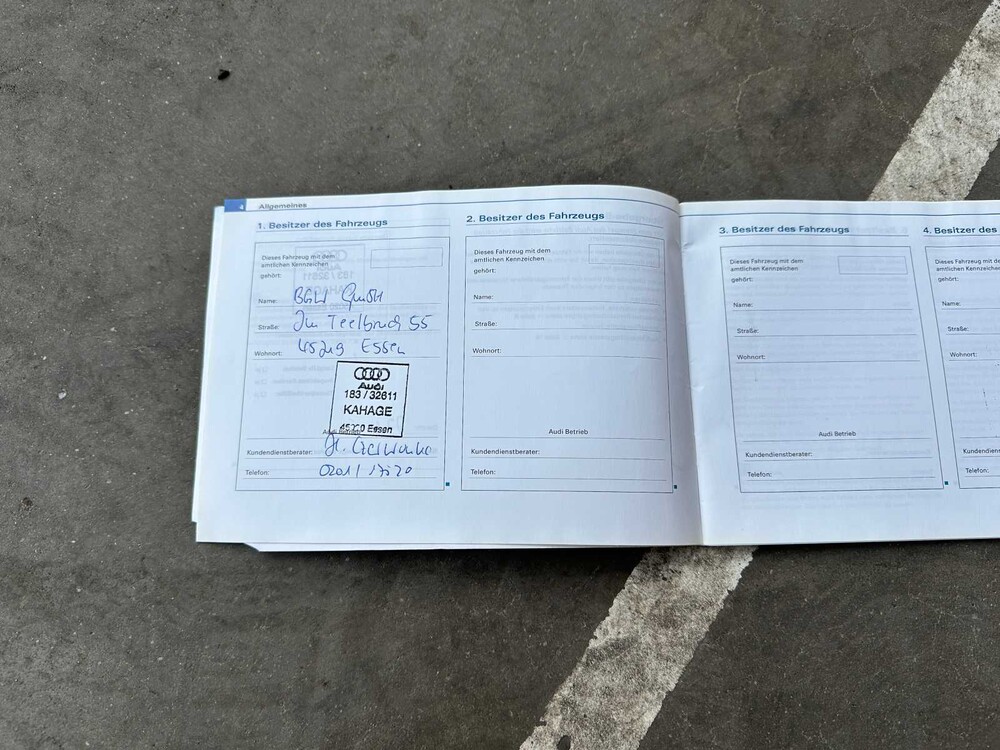 4 Allgemeines
1. Besitzer des Fahrzeugs
Dieses Fahrzeug mit dem
amtlichen Kennzeichen
gehört:
Name: BGW GmbH
Straße: Im Teelbruch 55
Wohnort: 45219 Essen
Audi
183 / 32611
KAHAGE
Essen
Audi Betrieb
Kundendienstberater:
Telefon: 0201/
2. Besitzer des Fahrzeugs
Dieses Fahrzeug mit dem
amtlichen Kennzeichen
gehört:
Name:
Straße:
Wohnort:
Audi Betrieb
Kundendienstberater:
Telefon:
3. Besitzer des Fahrzeugs
Dieses Fahrzeug mit dem
amtlichen Kennzeichen
gehört:
Name:
Straße:
Wohnort:
Audi Betrieb
Kundendienstberater:
Telefon:
4. Besitzer des
Dieses Fahrzeug
amtlichen Kennze
gehört:
Name:
Straße:
Wohnort:
Kundendienst
Telefon: